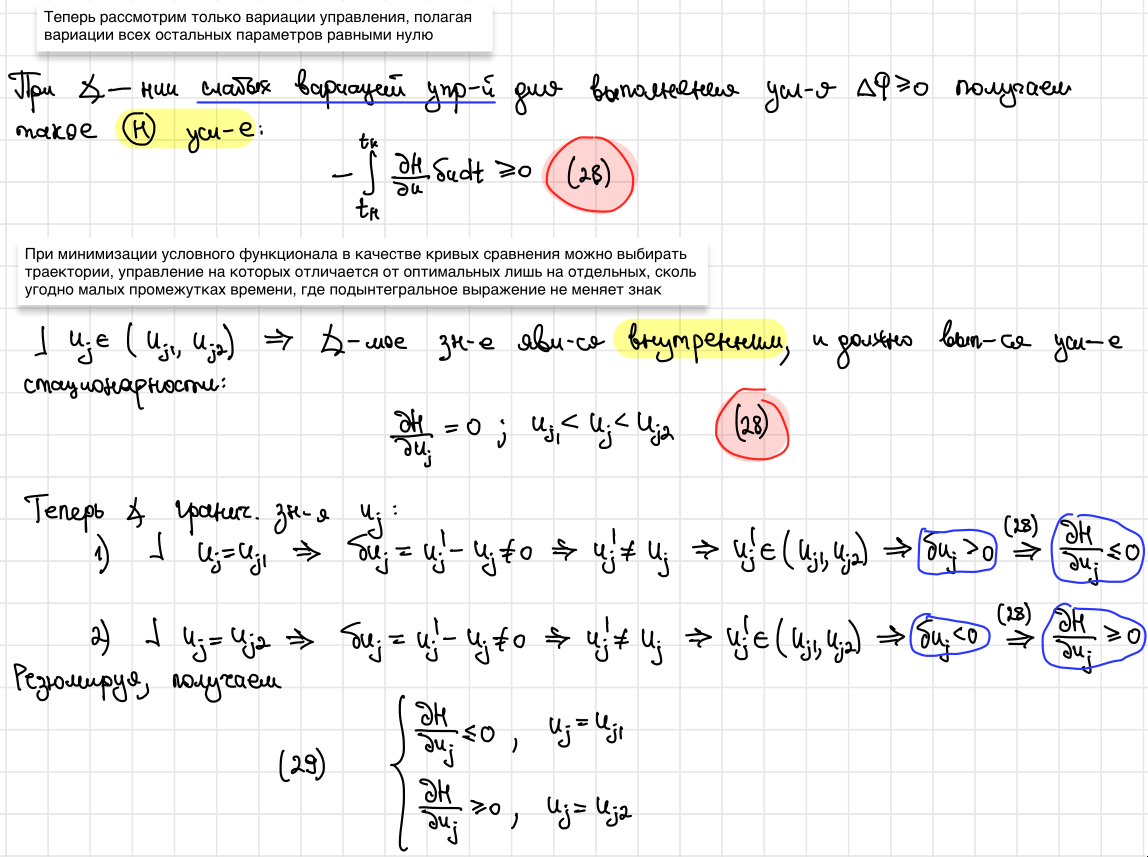 Теперь рассмотрим только вариации управления, полагая
вариации всех остальных параметров равными нулю
При ∡–нии слабых вариаций упр-й для выполнения усл-я ΔΦ≥0 получаем
такое Ⓗ усл-е:
- ∫_{tн}^{tк} ∂H/∂u δu dt ≥ 0 (28)
При минимизации условного функционала в качестве кривых сравнения можно выбирать
траектории, управление на которых отличается от оптимальных лишь на отдельных, сколь
угодно малых промежутках времени, где подынтегральное выражение не меняет знак
⅃ uj ∈ (uj1, uj2) ⇒ ∡-мое зн-е явл-ся внутренним, и должно вып-ся усл-е
стационарности:
∂H/∂uj = 0 ; uj1 < uj < uj2 (28)
Теперь ∡ гранич. зн-я uj:
1) ⅃ uj = uj1 ⇒ δuj = uj' - uj ≠ 0 ⇒ uj' ≠ uj ⇒ uj' ∈ (uj1, uj2) ⇒ δuj > 0 (28)⇒ ∂H/∂uj ≤ 0
2) ⅃ uj = uj2 ⇒ δuj = uj' - uj ≠ 0 ⇒ uj' ≠ uj ⇒ uj' ∈ (uj1, uj2) ⇒ δuj < 0 (28)⇒ ∂H/∂uj ≥ 0
Резюмируя, получаем
∂H/∂uj ≤ 0 , uj = uj1
(29)
∂H/∂uj ≥ 0 , uj = uj2